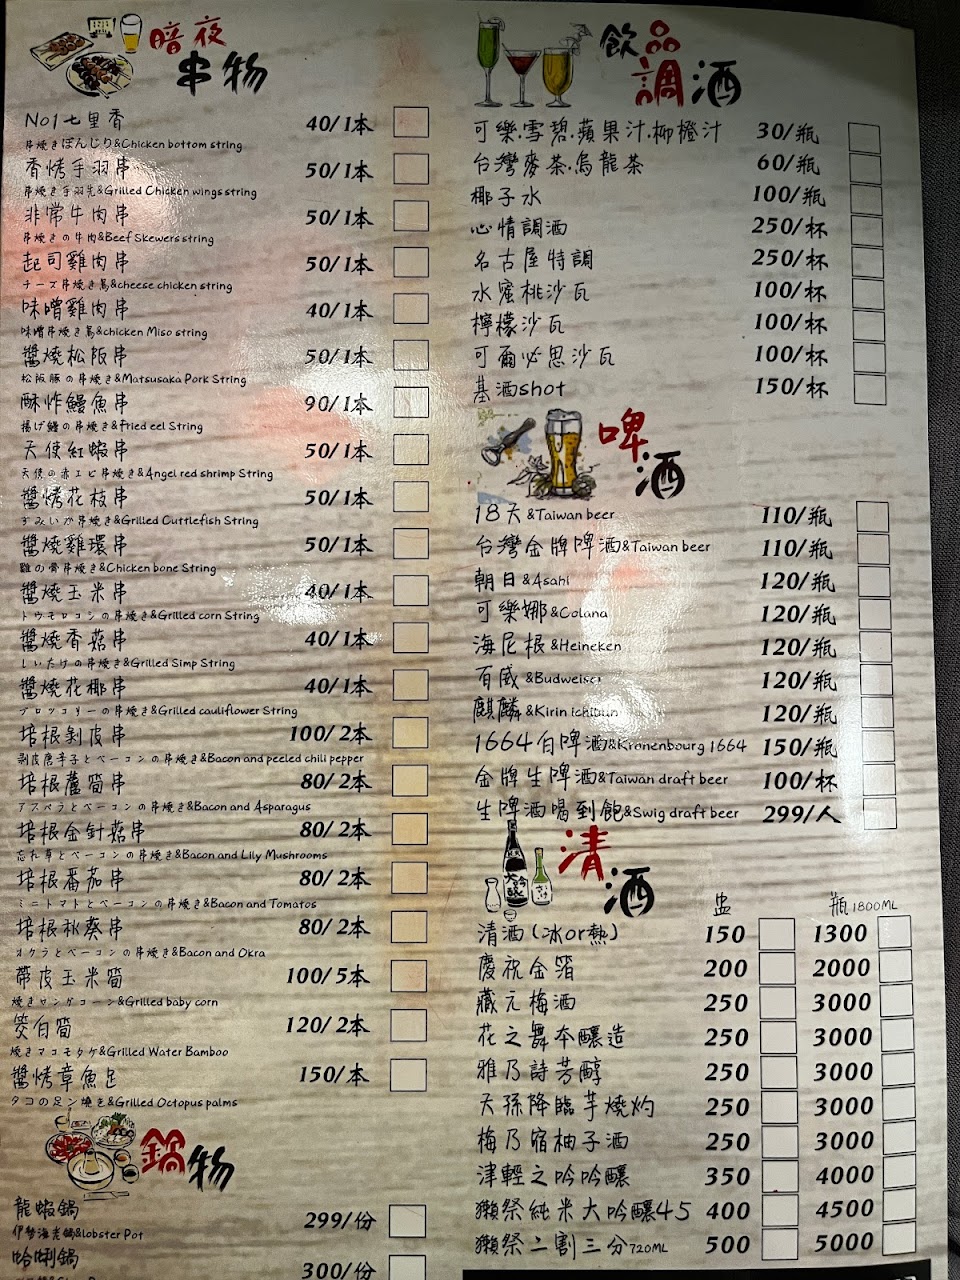 暗夜
串物
No1七里香 40/1本
串焼きぼんじり&Chicken bottom string
香烤手羽串 50/1本
串焼き手羽先&Grilled Chicken wings string
非常牛肉串 50/1本
串焼きの牛肉&Beef Skewers string
起司雞肉串 50/1本
チーズ串焼き鳥&cheese chicken string
味噌雞肉串 40/1本
味噌串焼き鳥&chicken Miso string
醬燒松阪串 50/1本
松阪豚の串焼き&Matsusaka Pork String
酥炸鰻魚串 90/1本
揚げ鰻の串焼き&Fried eel String
天使紅蝦串 50/1本
天使の赤エビ串焼き&Angel red shrimp String
醬烤花枝串 50/1本
すみいか串焼き&Grilled Cuttlefish String
醬燒雞環串 50/1本
雞の骨串焼き&Chicken bone String
醬燒玉米串 40/1本
トウモロコシの串焼き&Grilled corn String
醬燒香菇串 40/1本
しいたけの串焼き&Grilled Simp String
醬燒花椰串 40/1本
ブロッコリーの串焼き&Grilled cauliflower String
培根剝皮串 100/2本
剥皮唐辛子とベーコンの串焼き&Bacon and peeled chili pepper
培根蘆筍串 80/2本
アスペラとベーコンの串焼き&Bacon and Asparagus
培根金針菇串 80/2本
忘れ草とベーコンの串焼き&Bacon and Lily Mushrooms
培根番茄串 80/2本
ミニトマトとベーコンの串焼き&Bacon and Tomatos
培根秋葵串 80/2本
オクラとベーコンの串焼き&Bacon and Okra
帶皮玉米筍 100/5本
焼きヤングコーン&Grilled baby corn
筊白筍 120/2本
焼きマコモタケ&Grilled Water Bamboo
醬烤章魚足 150/本
タコの足ン焼き&Grilled Octopus palms
鍋物
龍蝦鍋 299/份
伊勢海老鍋&lobster Pot
蛤蜊鍋 300/份
飲品
調酒
可樂.雪碧.蘋果汁.柳橙汁 30/瓶
台灣麥茶.烏龍茶 60/瓶
椰子水 100/瓶
心情調酒 250/杯
名古屋特調 250/杯
水蜜桃沙瓦 100/杯
檸檬沙瓦 100/杯
可爾必思沙瓦 100/杯
基酒shot 150/杯
啤酒
18天&Taiwan beer 110/瓶
台灣金牌啤酒&Taiwan beer 110/瓶
朝日&Asahi 120/瓶
可樂娜&Colana 120/瓶
海尼根&Heineken 120/瓶
百威&Budweiser 120/瓶
麒麟&Kirin ichiban 120/瓶
1664白啤酒&Kronenbourg 1664 150/瓶
金牌生啤酒&Taiwan draft beer 100/杯
生啤酒喝到飽&Swig draft beer 299/人
清酒
盅 瓶1800ML
清酒(冰or熱) 150 1300
慶祝金箔 200 2000
藏元梅酒 250 3000
花之舞本釀造 250 3000
雅乃詩芳醇 250 3000
天孫降臨芋燒灼 250 3000
梅乃宿柚子酒 250 3000
津輕之吟吟釀 350 4000
獺祭純米大吟釀45 400 4500
獺祭二割三分720ML 500 5000